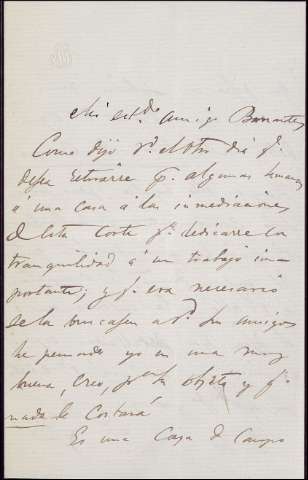 Mi est.do amigo Barrantes
Como dijo V. el otro dia q.e
desea retirarse p.r algunas semanas
á una casa á las inmediaciones
de esta Corte p.a dedicarse con
tranquilidad á un trabajo im-
portante; y q.e era necesario
se la buscasen a V. sus amigos
he pensado yo en una muy
buena, creo, p.a el objeto y q.e
nada le costará
Es una Casa de Campo